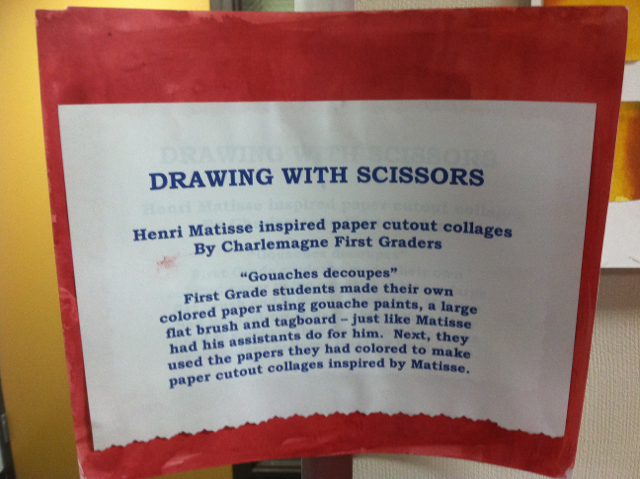 DRAWING WITH SCISSORS
Henri Matisse inspired paper cutout collages
By Charlemagne First Graders
“Gouaches decoupes”
First Grade students made their own
colored paper using gouache paints, a large
flat brush and tagboard – just like Matisse
had his assistants do for him. Next, they
used the papers they had colored to make
paper cutout collages inspired by Matisse.